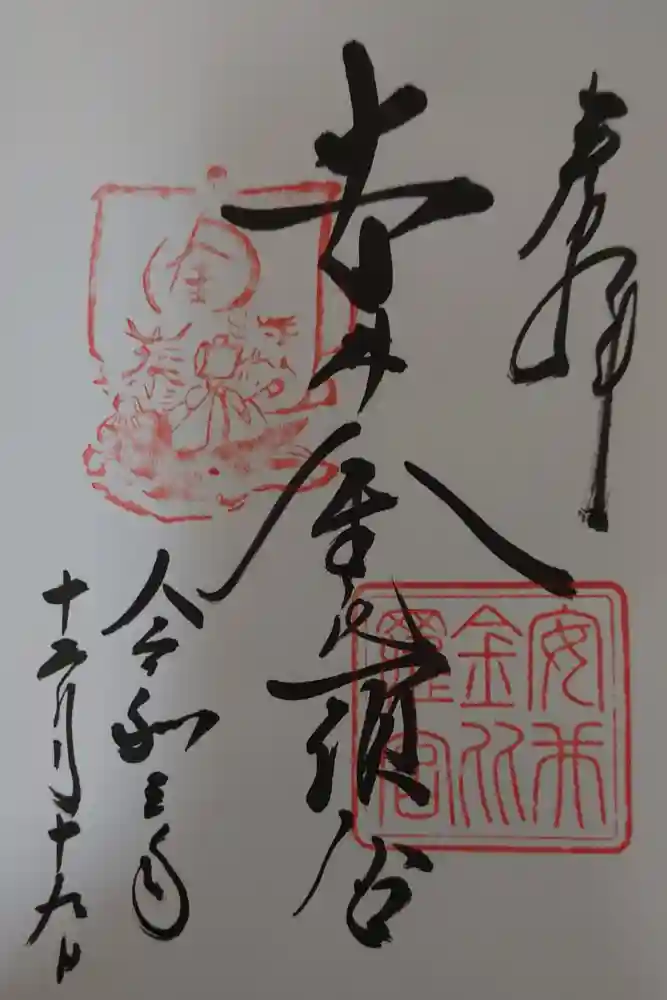 奉拝
安井金比羅宮
安井
金比
羅宮
金
令和三年
十二月十九日